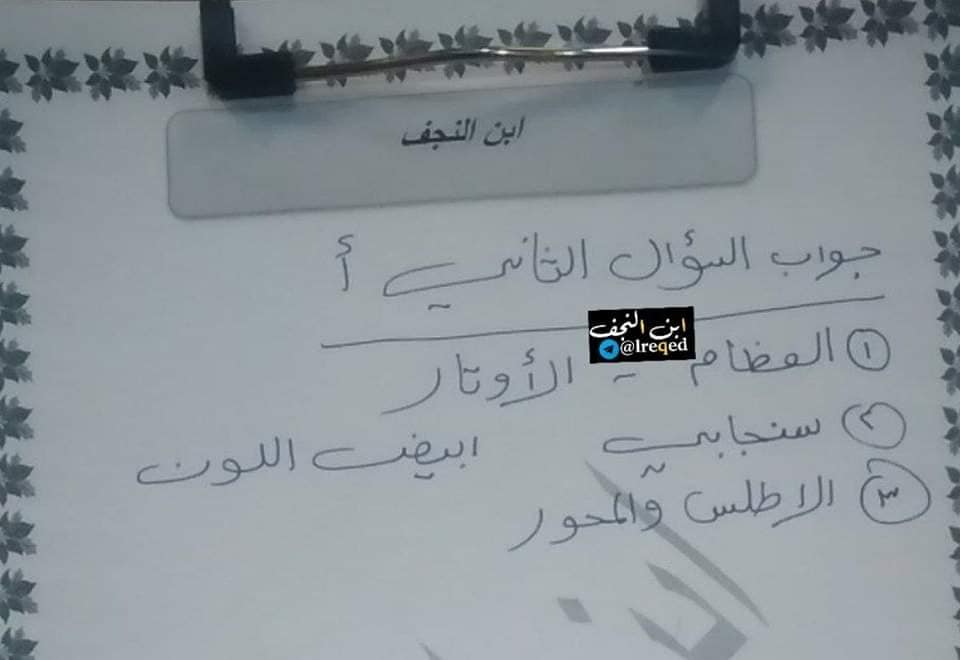 ابن النجف
جواب السؤال الثاني أ
ابن النجف
@Ireqed
١ العظام - الأوتار
٢ سنجابي ابيض اللون
٣ الاطلس والمحور